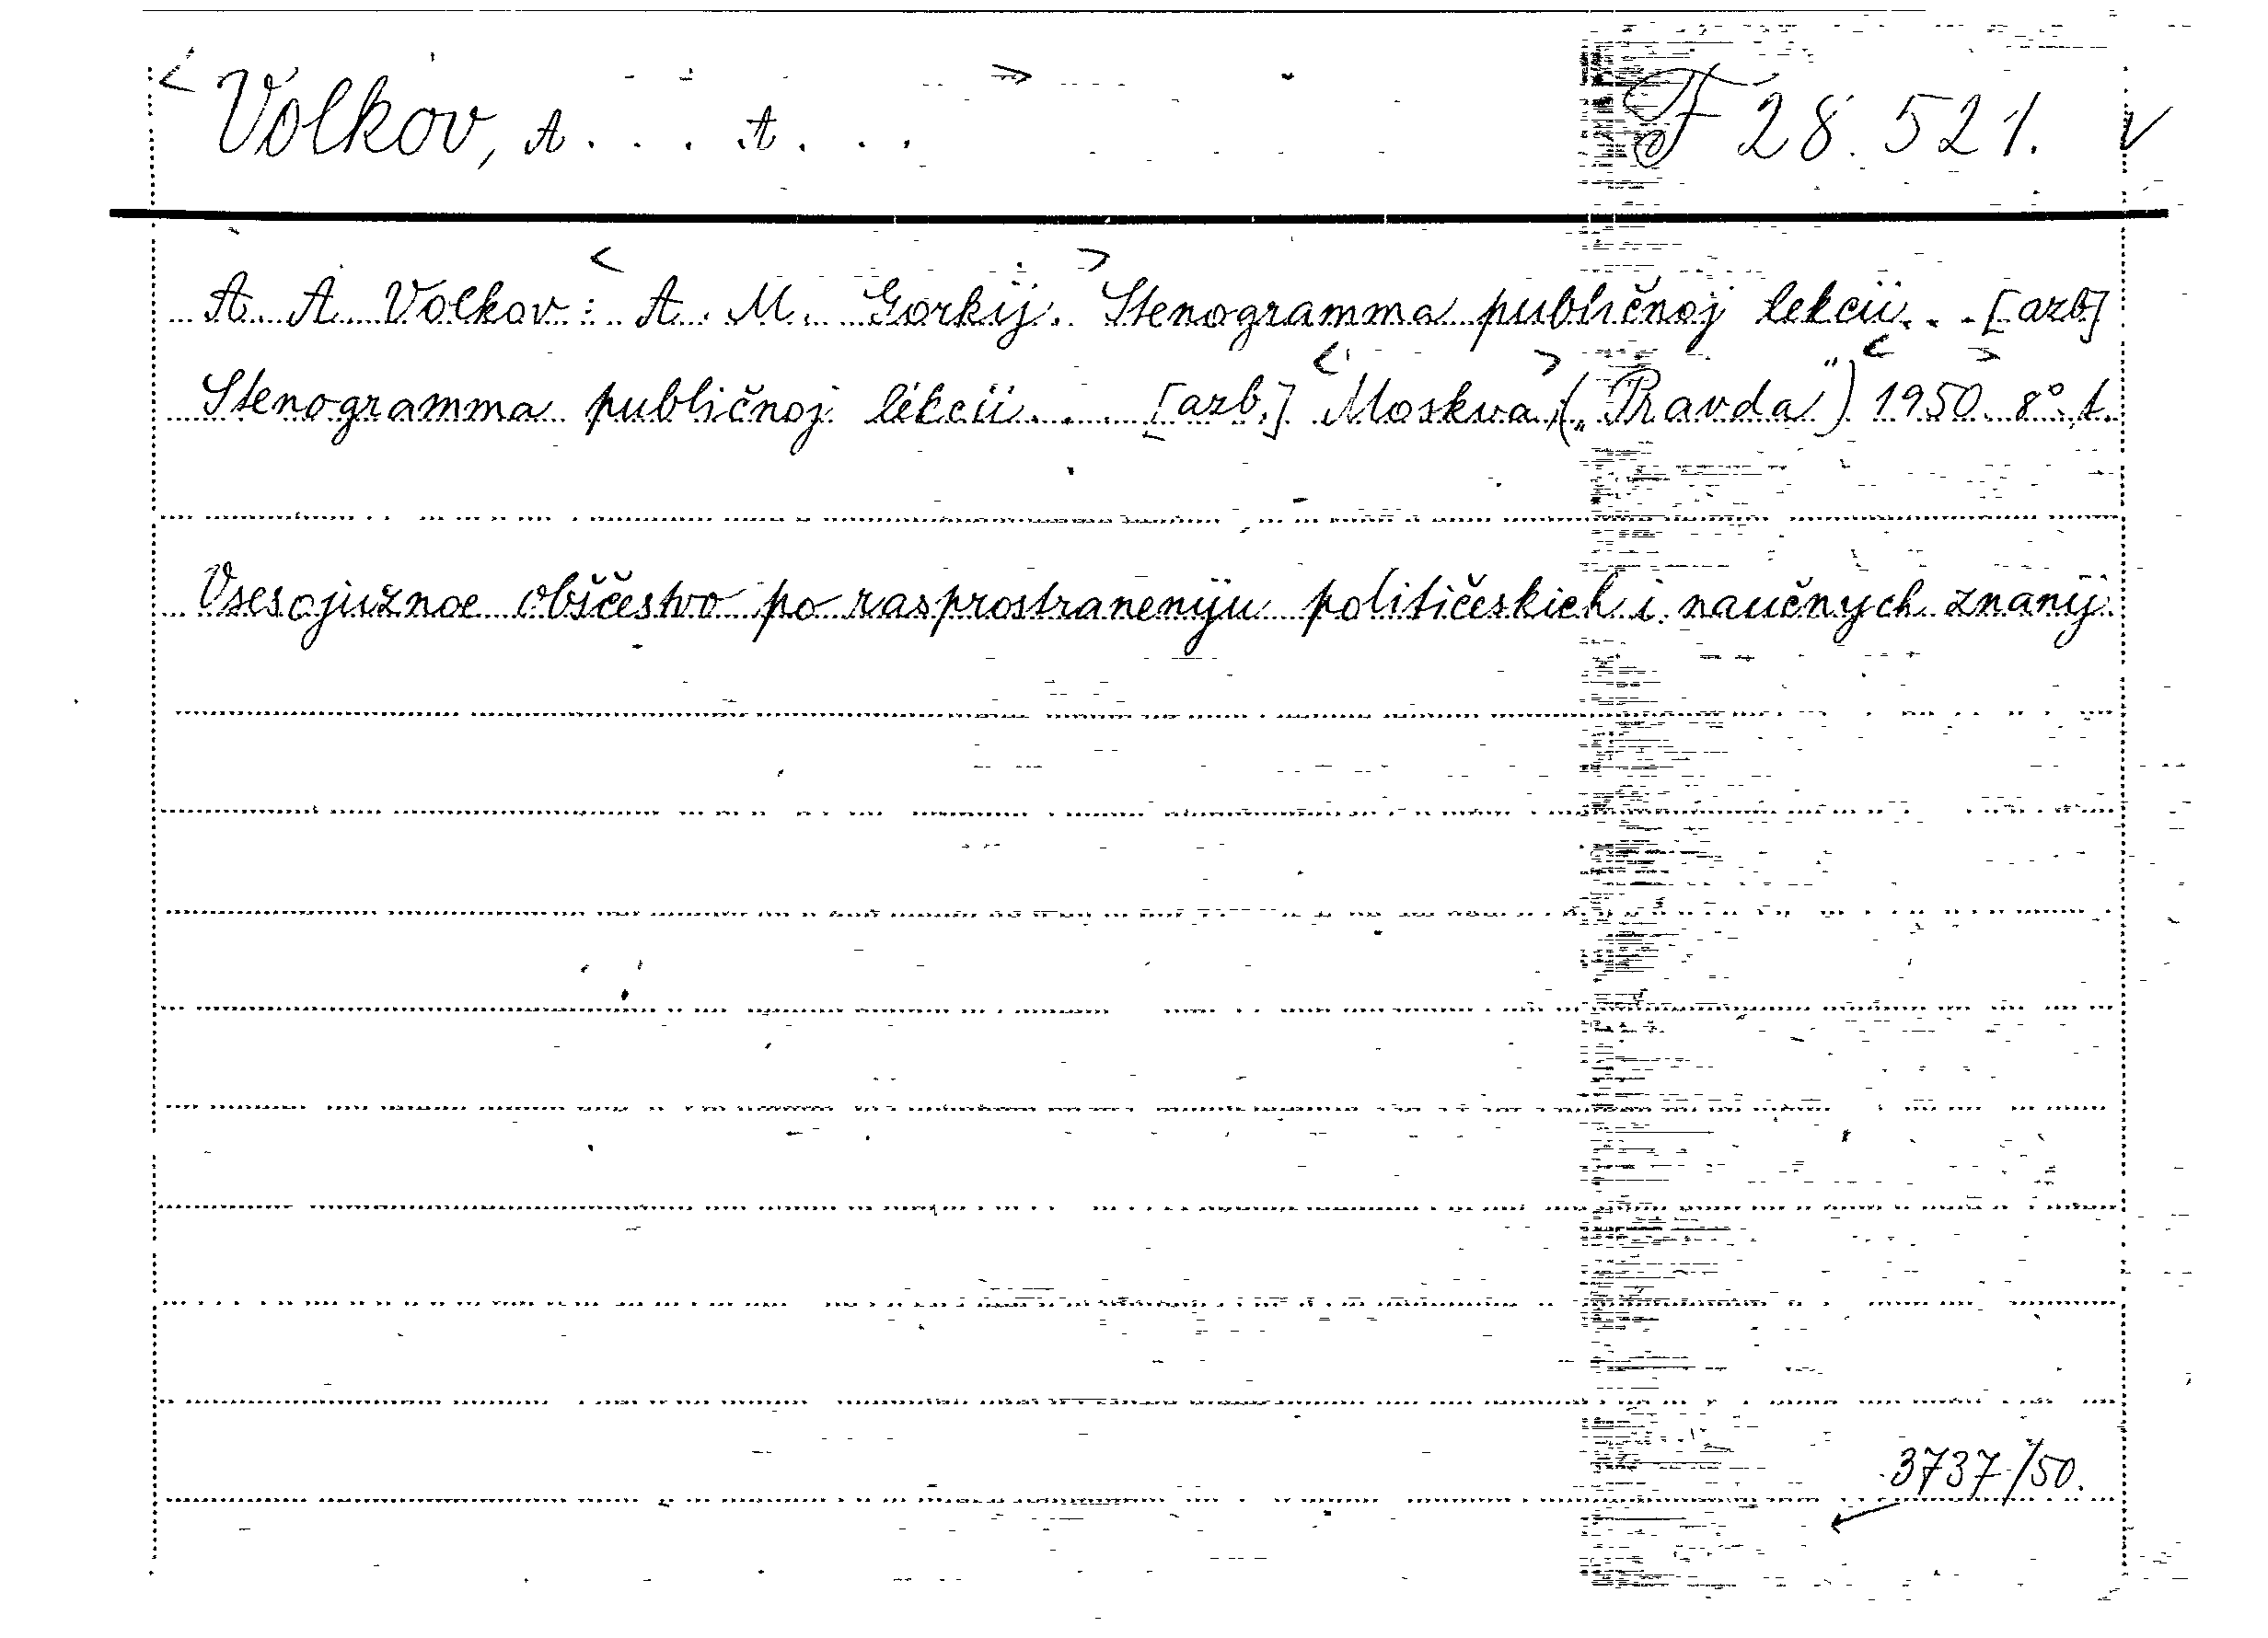 < Volkov, A . . . A . . . > F 28.521. v
A. A. Volkov: < A. M. Gorkij. > Stenogramma publičnoj lekcii. . . [azb]
Stenogramma publičnoj lekcii. . . [azb.] < Moskva > („Pravda") < 1950 > 8°, t.
Vsesojuznoe obščestvo po rasprostraneniju političeskich i naučnych znanij.
3737/50.